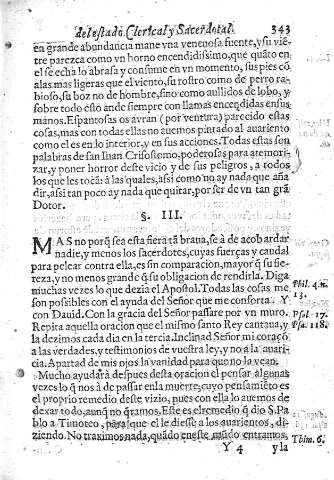 del estado Clerical y Sacerdotal. 343
en grande abundancia mane vna venenosa fuente, y su vie
tre parezca como vn horno encendidissimo, que quãto en
el se echa lo abrasa y consume en vn momento, sus pies có
alas mas ligeras que el viento, su rostro como de perro ra-
bioso, su boz no de hombre, sino como aullidos de lobo, y
sobre todo esto ande siempre con llamas encendidas en sus
manos. Espantosas os avran (por ventura) parecido estas
cosas, mas con todas ellas no auemos pintado al auariento
como el es en lo interior, y en sus acciones. Todas estas son
palabras de san Iuan Crisostomo, poderosas para atemori-
zar, y poner horror deste vicio y de sus peligros, a todos
los que les tocã: à las quales, assi como no ay nada que aña
dir, assi tan poco ay nada que quitar, por ser de vn tan grã
Dotor.
§. III.
MAS no porq̃ sea esta fiera tã braua, se à de acobardar
nadie, y menos los sacerdotes, cuyas fuerças y caudal
para pelear contra ella, es sin comparacion, mayor q̃ su fie-
reza, y no menos grande q̃ su obligacion de rendirla. Diga
muchas vezes lo que dezia el Apostol. Todas las cosas me
son possibles con el ayuda del Señor que me conforta. Y
con Dauid. Con la gracia del Señor passarè por vn muro.
Repita aquella oracion que el mismo santo Rey cantaua, y
la dezimos cada dia en la tercia. Inclinad Señor mi coraçõ
a las verdades, y testimonios de vuestra ley, y no a la auari-
cia. Apartad de mis ojos la vanidad para que no la vean.
Mucho ayudarà despues desta oracion el pensar algunas
vezes lo q̃ nos à de passar en la muerte, cuyo pensamiẽto es
el proprio remedio deste vizio, pues con ella lo auemos de
dexar todo, aunq̃ no q̃ramos. Este es el remedio q̃ dio S. Pa
blo a Timoteo, para que el le diesse a los auarientos, di-
ziendo. No traximos nada, quãdo en este mũdo entramos,
Phil. 4. n.
13.
Psal. 17.
Psa. 118.
Thim. 6.
Y 4 y la